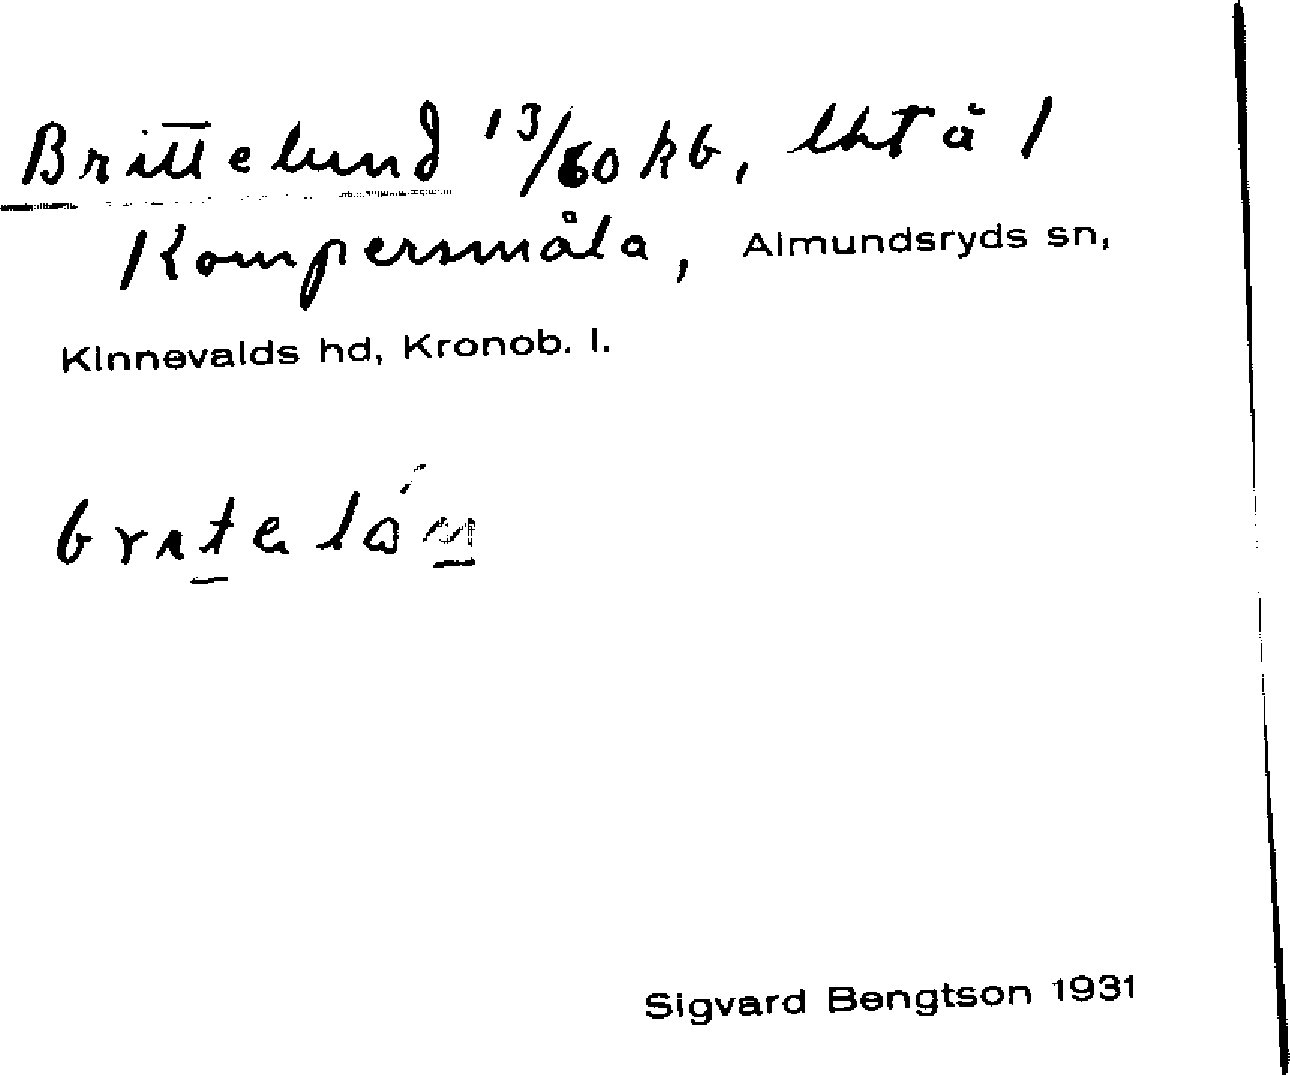 Brittelund 13/60 kb, lht å 1
Kompersmåla, Almundsryds sn,
Kinnevalds hd, Kronob. l.
Sigvard Bengtson 1931